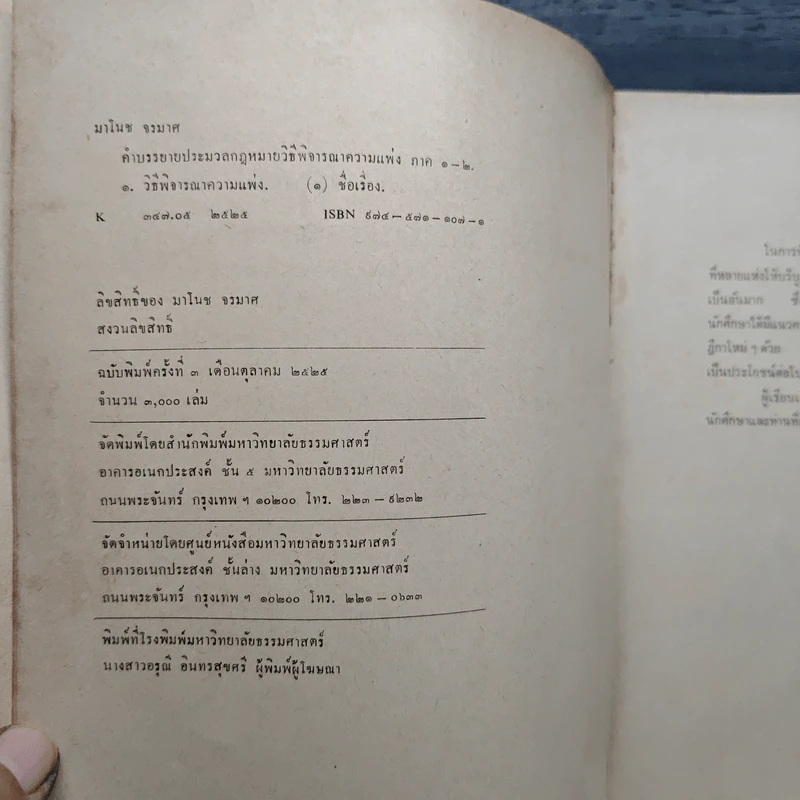 มาโนช จรมาศ
คำบรรยายประมวลกฎหมายวิธีพิจารณาความแพ่ง ภาค ๑-๒.
๑. วิธีพิจารณาความแพ่ง. (๑) ชื่อเรื่อง.
K ๓๔๗.๐๕ ๒๕๒๕ ISBN ๙๗๔-๕๗๑-๑๐๗-๑
ลิขสิทธิ์ของ มาโนช จรมาศ
สงวนลิขสิทธิ์
ฉบับพิมพ์ครั้งที่ ๓ เดือนตุลาคม ๒๕๒๕
จำนวน ๓,๐๐๐ เล่ม
จัดพิมพ์โดยสำนักพิมพ์มหาวิทยาลัยธรรมศาสตร์
อาคารอเนกประสงค์ ชั้น ๕ มหาวิทยาลัยธรรมศาสตร์
ถนนพระจันทร์ กรุงเทพ ฯ ๑๐๒๐๐ โทร. ๒๒๓-๙๒๓๒
จัดจำหน่ายโดยศูนย์หนังสือมหาวิทยาลัยธรรมศาสตร์
อาคารอเนกประสงค์ ชั้นล่าง มหาวิทยาลัยธรรมศาสตร์
ถนนพระจันทร์ กรุงเทพ ฯ ๑๐๒๐๐ โทร. ๒๒๑-๐๖๓๓
พิมพ์ที่โรงพิมพ์มหาวิทยาลัยธรรมศาสตร์
นางสาวอรุณี อินทรสุขศรี ผู้พิมพ์ผู้โฆษณา
ในการ
ที่หลายแห่งให้บริบู
เป็นอันมาก ซึ่
นักศึกษาได้มีแนวค
ฎีกาใหม่ ๆ ด้วย
เป็นประโยชน์ต่อไป
ผู้เรียบเ
นักศึกษาและท่านที่